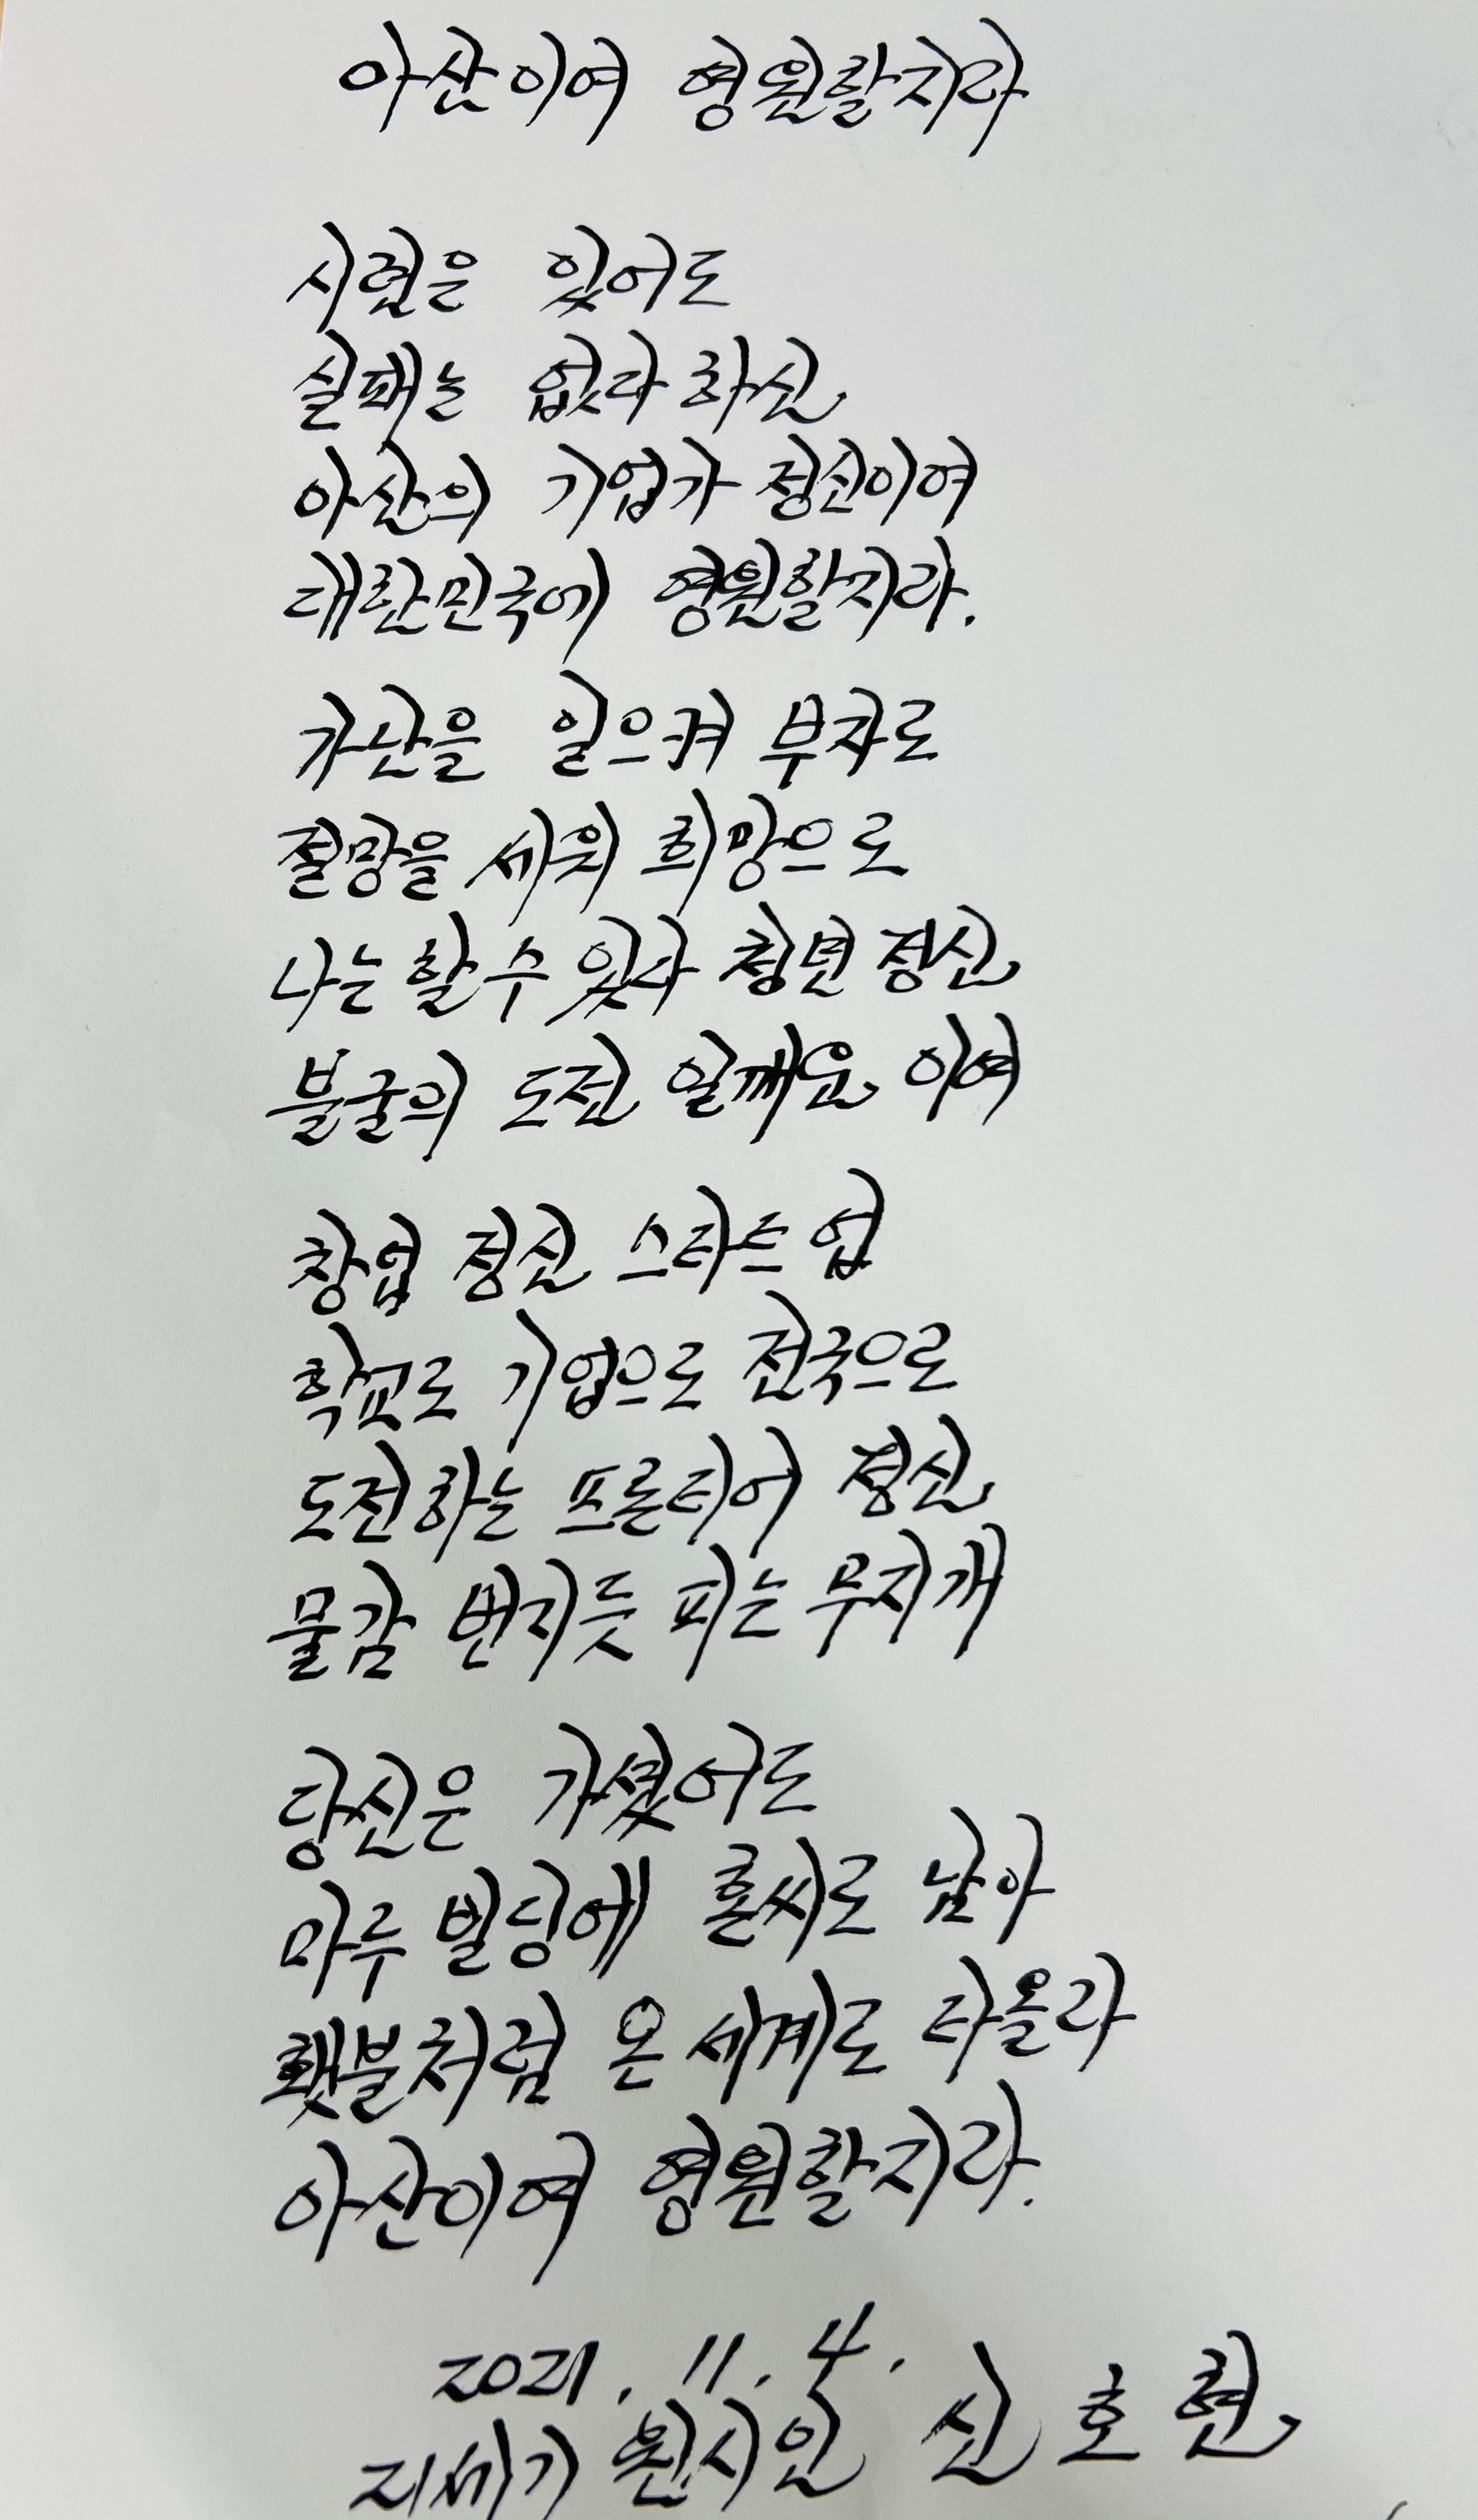 아산이여 영원할지라
시련은 있어도
실패는 없다 하신
아산의 기업가 정신이여
대한민국에 영원할지라.
가난을 일으켜 부자로
절망을 세워 희망으로
나는 할 수 있다 청년 정신
불굴의 도전 일깨운 이여
창업 정신 스타트 업
학교로 기업으로 전국으로
도전하는 프론티어 정신
물감 번지듯 피는 무지개
당신은 가셨어도
마루 빌딩에 혼씨로 남아
횃불처럼 온 세계로 타올라
아산이여 영원할지라.
2021. 11. 4.
21세기 원시인 신호현